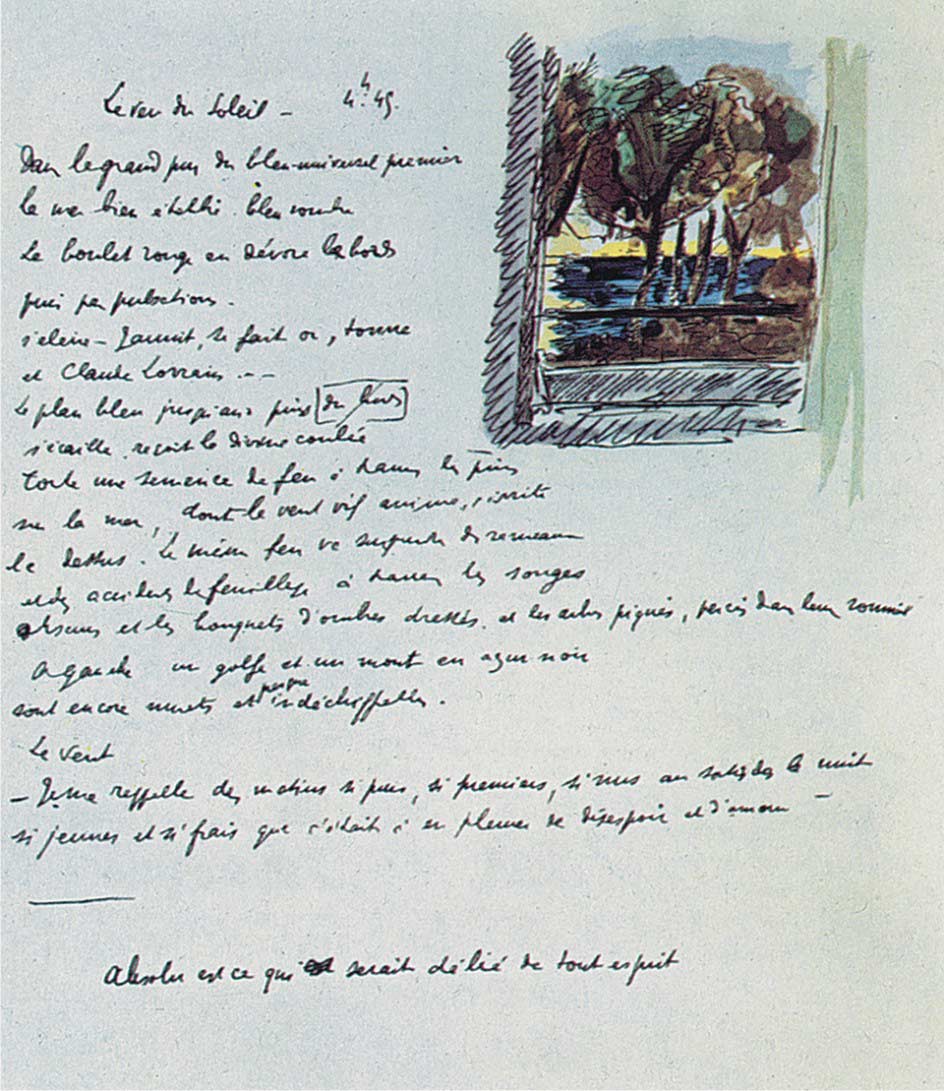 Lever du Soleil – 4h 45.
Dans le grand pur du bleu-universel premier
la mer bien établie. bleu
Le boulet rouge en dévore les bords
puis par pulsations.
s'élève – Jaunit, se fait or, tonne
et Claude Lorrain. --
Le plan bleu jusqu'aux pins du bord
s'écaille, reçoit la divine coulée
Toute une semence de feu à travers les pins
sur la mer, dont le vent vif anime, irrite
le dessus. Le même feu va surprendre des rameaux
et des accidents de feuillage à travers les songes
obscurs et les bouquets d'ombres dressés. et les arbres piqués, percés dans leur sommeil
A gauche un golfe et un mont en azur noir
sont encore muets et presque indéchiffrables.
Le vent
– Je me rappelle des matins si purs, si premiers, si nus au sortir de la nuit
si jeunes et si frais que c'était à en pleurer de désespoir et d'amour –
Absolu est ce qui serait délié de tout esprit